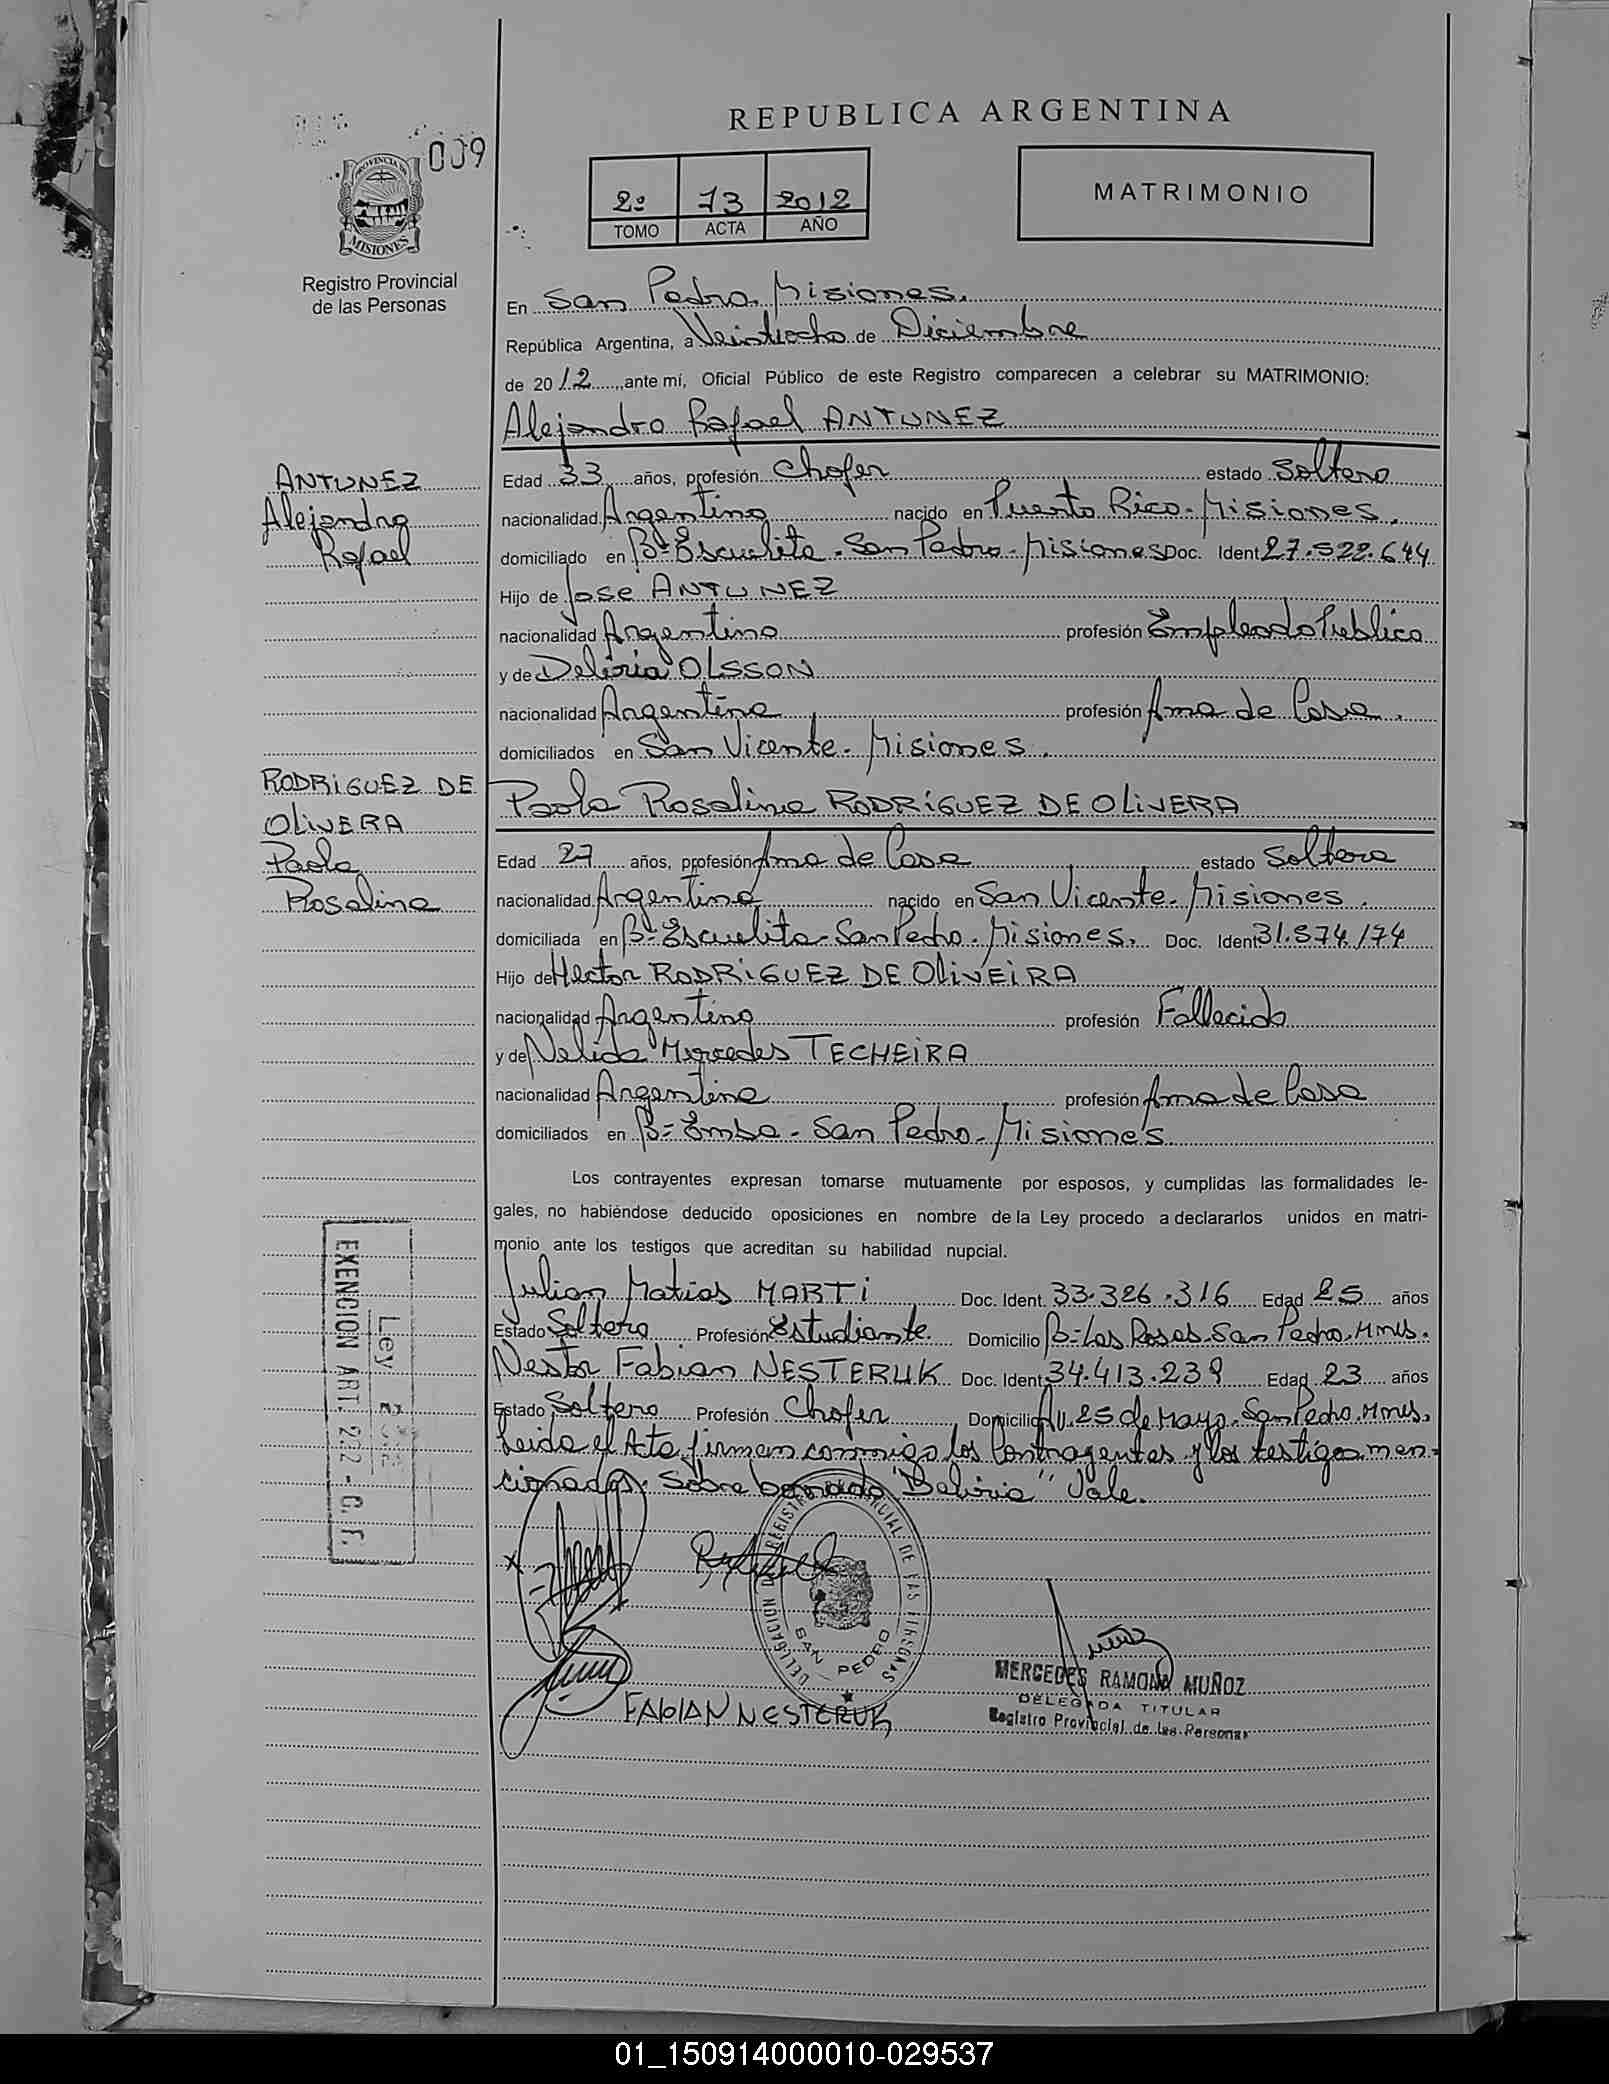 REPUBLICA ARGENTINA
009
2º 73 2012
TOMO ACTA AÑO
MATRIMONIO
PROVINCIA DE
MISIONES
Registro Provincial
de las Personas
En San Pedro. Misiones.
República Argentina, a Veintiocho de Diciembre
de 2012, ante mí, Oficial Público de este Registro comparecen a celebrar su MATRIMONIO:
Alejandro Rafael ANTUNEZ
ANTUNEZ
Alejandro
Rafael
Edad 33 años, profesión Chofer estado Soltero
nacionalidad Argentino nacido en Puerto Rico. Misiones.
domiciliado en Bº Escuelita. San Pedro. Misiones Doc. Ident 27.522.644
Hijo de José ANTUNEZ
nacionalidad Argentino profesión Empleado Publico
y de Deliria OLSSON
nacionalidad Argentina profesión Ama de Casa.
domiciliados en San Vicente. Misiones.
RODRIGUEZ DE
OLIVERA
Paola
Rosalina
Paola Rosalina RODRÍGUEZ DE OLIVERA
Edad 27 años, profesión Ama de Casa estado Soltera
nacionalidad Argentina nacido en San Vicente. Misiones.
domiciliada en Bº Escuelita. San Pedro. Misiones. Doc. Ident 31.574.174
Hijo de Hector RODRIGUEZ DE OLIVEIRA
nacionalidad Argentino profesión Fallecido
y de Nelida Mercedes TECHEIRA
nacionalidad Argentina profesión Ama de Casa
domiciliados en Bº Emba. San Pedro. Misiones
Los contrayentes expresan tomarse mutuamente por esposos, y cumplidas las formalidades le-
gales, no habiéndose deducido oposiciones en nombre de la Ley procedo a declararlos unidos en matri-
monio ante los testigos que acreditan su habilidad nupcial.
Julian Matias MARTI Doc. Ident. 33.326.316 Edad 25 años
Estado Soltero Profesión Estudiante Domicilio Bº Las Rosas. San Pedro. Mnes.
Nestor Fabian NESTERUK Doc. Ident 34.413.239 Edad 23 años
Estado Soltero Profesión Chofer Domicilio Av. 25 de Mayo. San Pedro. Mnes.
Leida el Acta firman conmigo los Contrayentes y los testigos men-
cionados. Sobre borrado "Deliria" Vale.
Ley
EXENCION ART. 222 - C. F.
DELEGACIÓN DEL REGISTRO PROVINCIAL DE LAS PERSONAS
SAN PEDRO
FABIAN NESTERUK
MERCEDES RAMONA MUÑOZ
DELEGADA TITULAR
Registro Provincial de las Personas
01_150914000010-029537